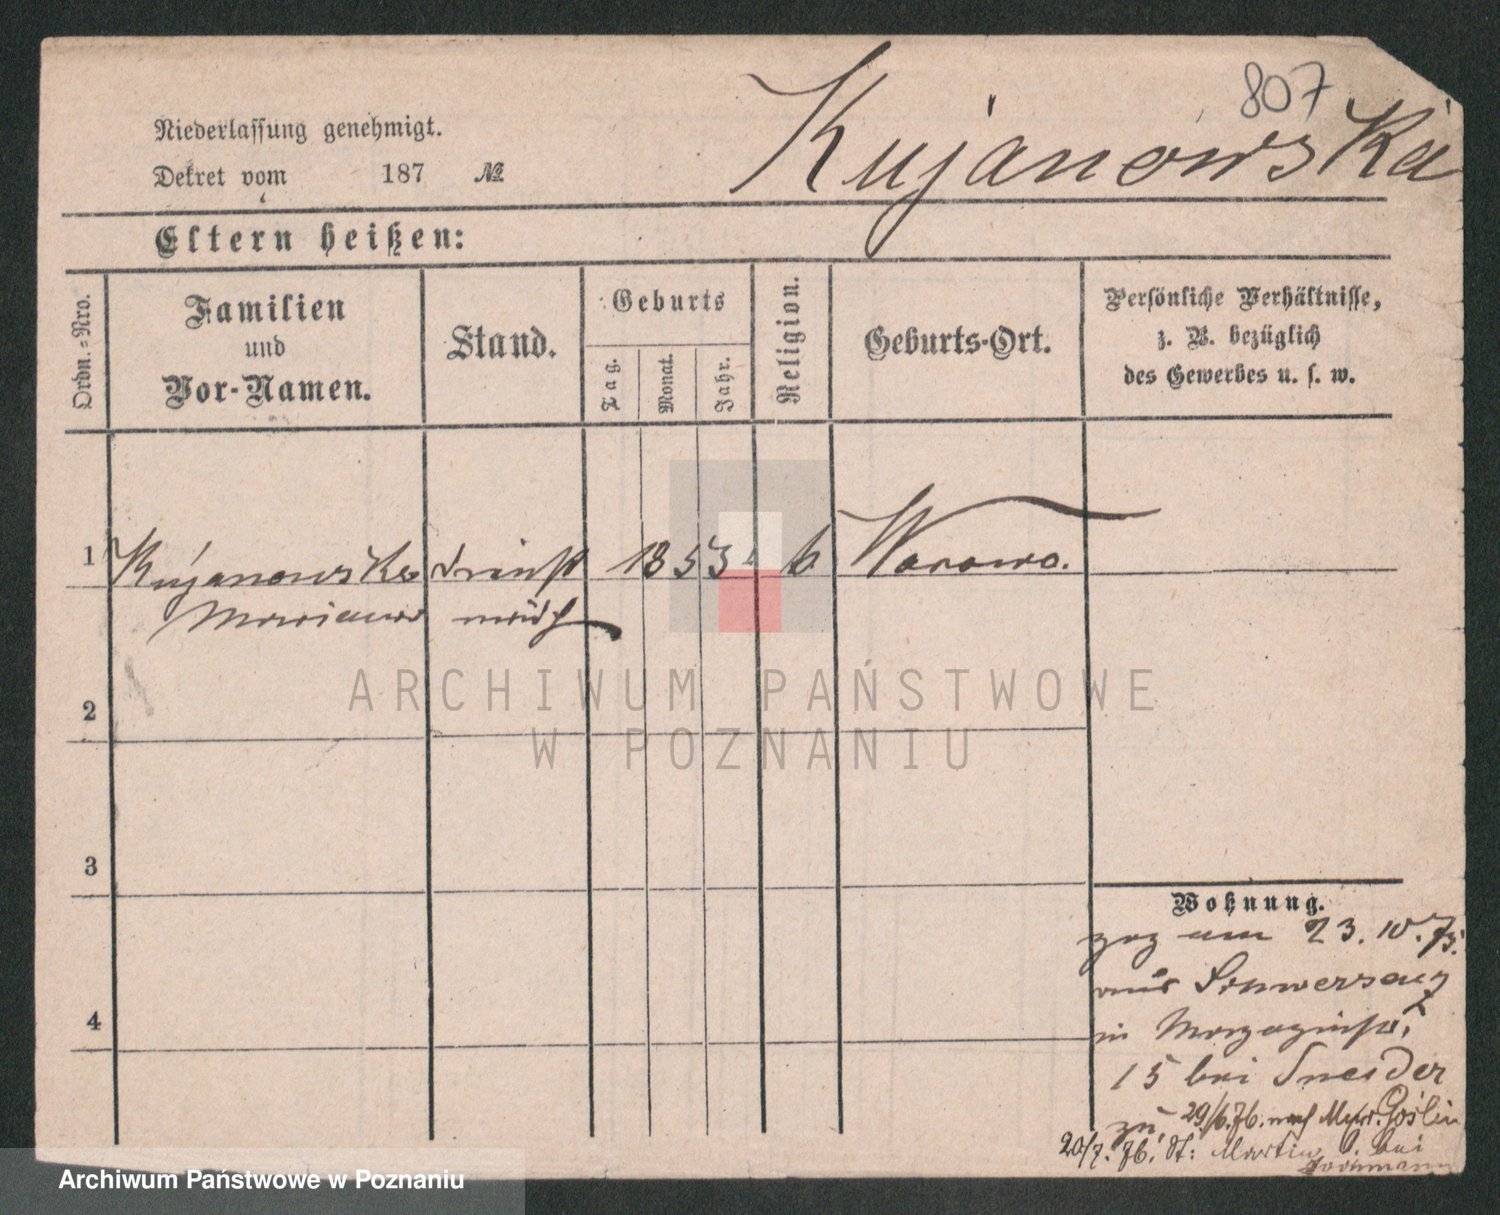 807
Kujanowska
Niederlassung genehmigt.
Dekret vom 187 №
Eltern heißen:
Ordn.-Nro.
Familien
und
Vor-Namen.
Stand.
Geburts
Tag.
Monat.
Jahr.
Religion.
Geburts-Ort.
Persönliche Verhältnisse,
z. B. bezüglich
des Gewerbes u. s. w.
1 Kujanowska dienst 1853 k
Marianna mädch
2
3
4
Wohnung.
zog am 23.10.75.
aus
in
15 bei Sneider
zu, 29/6.76. nach Goślin
20/7. 76. St: Martin 6. bei
ARCHIWUM PAŃSTWOWE
W POZNANIU
Archiwum Państwowe w Poznaniu